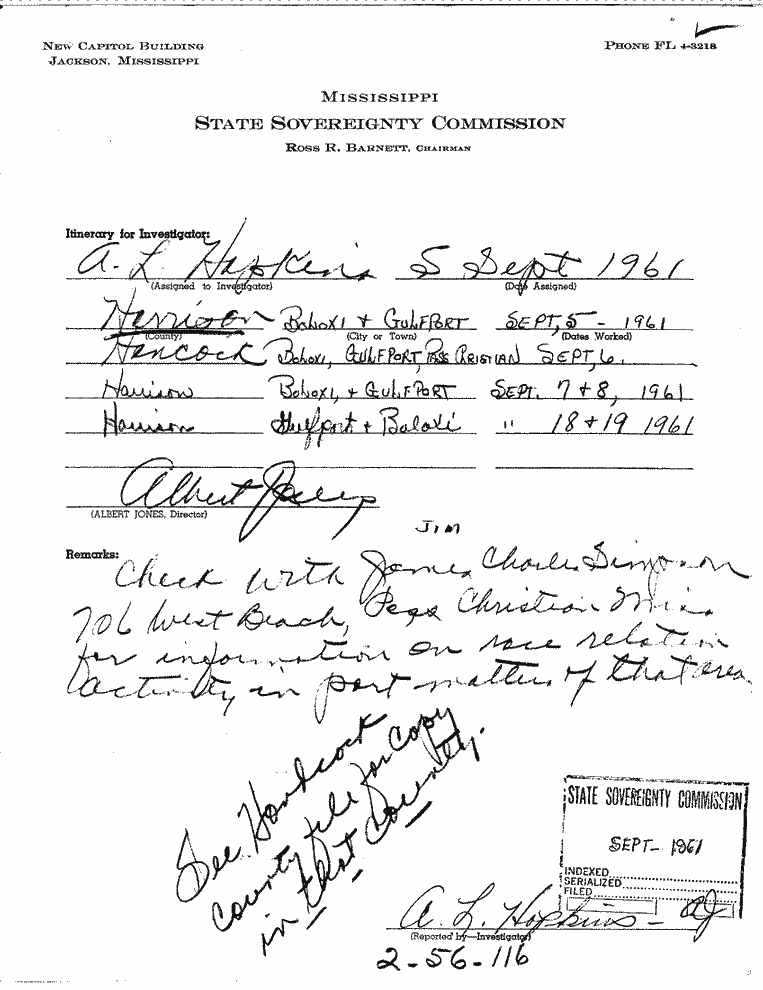 NEW CAPITOL BUILDING
JACKSON, MISSISSIPPI
PHONE FL 4-3218
MISSISSIPPI
STATE SOVEREIGNTY COMMISSION
ROSS R. BARNETT, CHAIRMAN
Itinerary for Investigator:
A. L. Hopkins 5 Sept 1961
(Assigned to Investigator) (Date Assigned)
Harrison BoLoxi + GULFPORT SEPT, 5 - 1961
(County) (City or Town) (Dates Worked)
Hancock BoLoxi, GULFPORT, PASS CRISTIAN SEPT, 6.
Harrison BoLoxi, + GULFPORT SEPT. 7 + 8, 1961
Harrison Gulfport + Baloxi " 18 + 19 1961
Albert Jones
(ALBERT JONES, Director)
JIM
Remarks:
Check with James Charles Simpson
706 West Beach, Pass Christian Miss
for information on race relation
activity in part matters of that area.
See Handcock
county file for copy
in that County.
STATE SOVEREIGNTY COMMISSION
SEPT- 1961
INDEXED
SERIALIZED
FILED
A. L. Hopkins - AJ
(Reported by—Investigator)
2-56-116